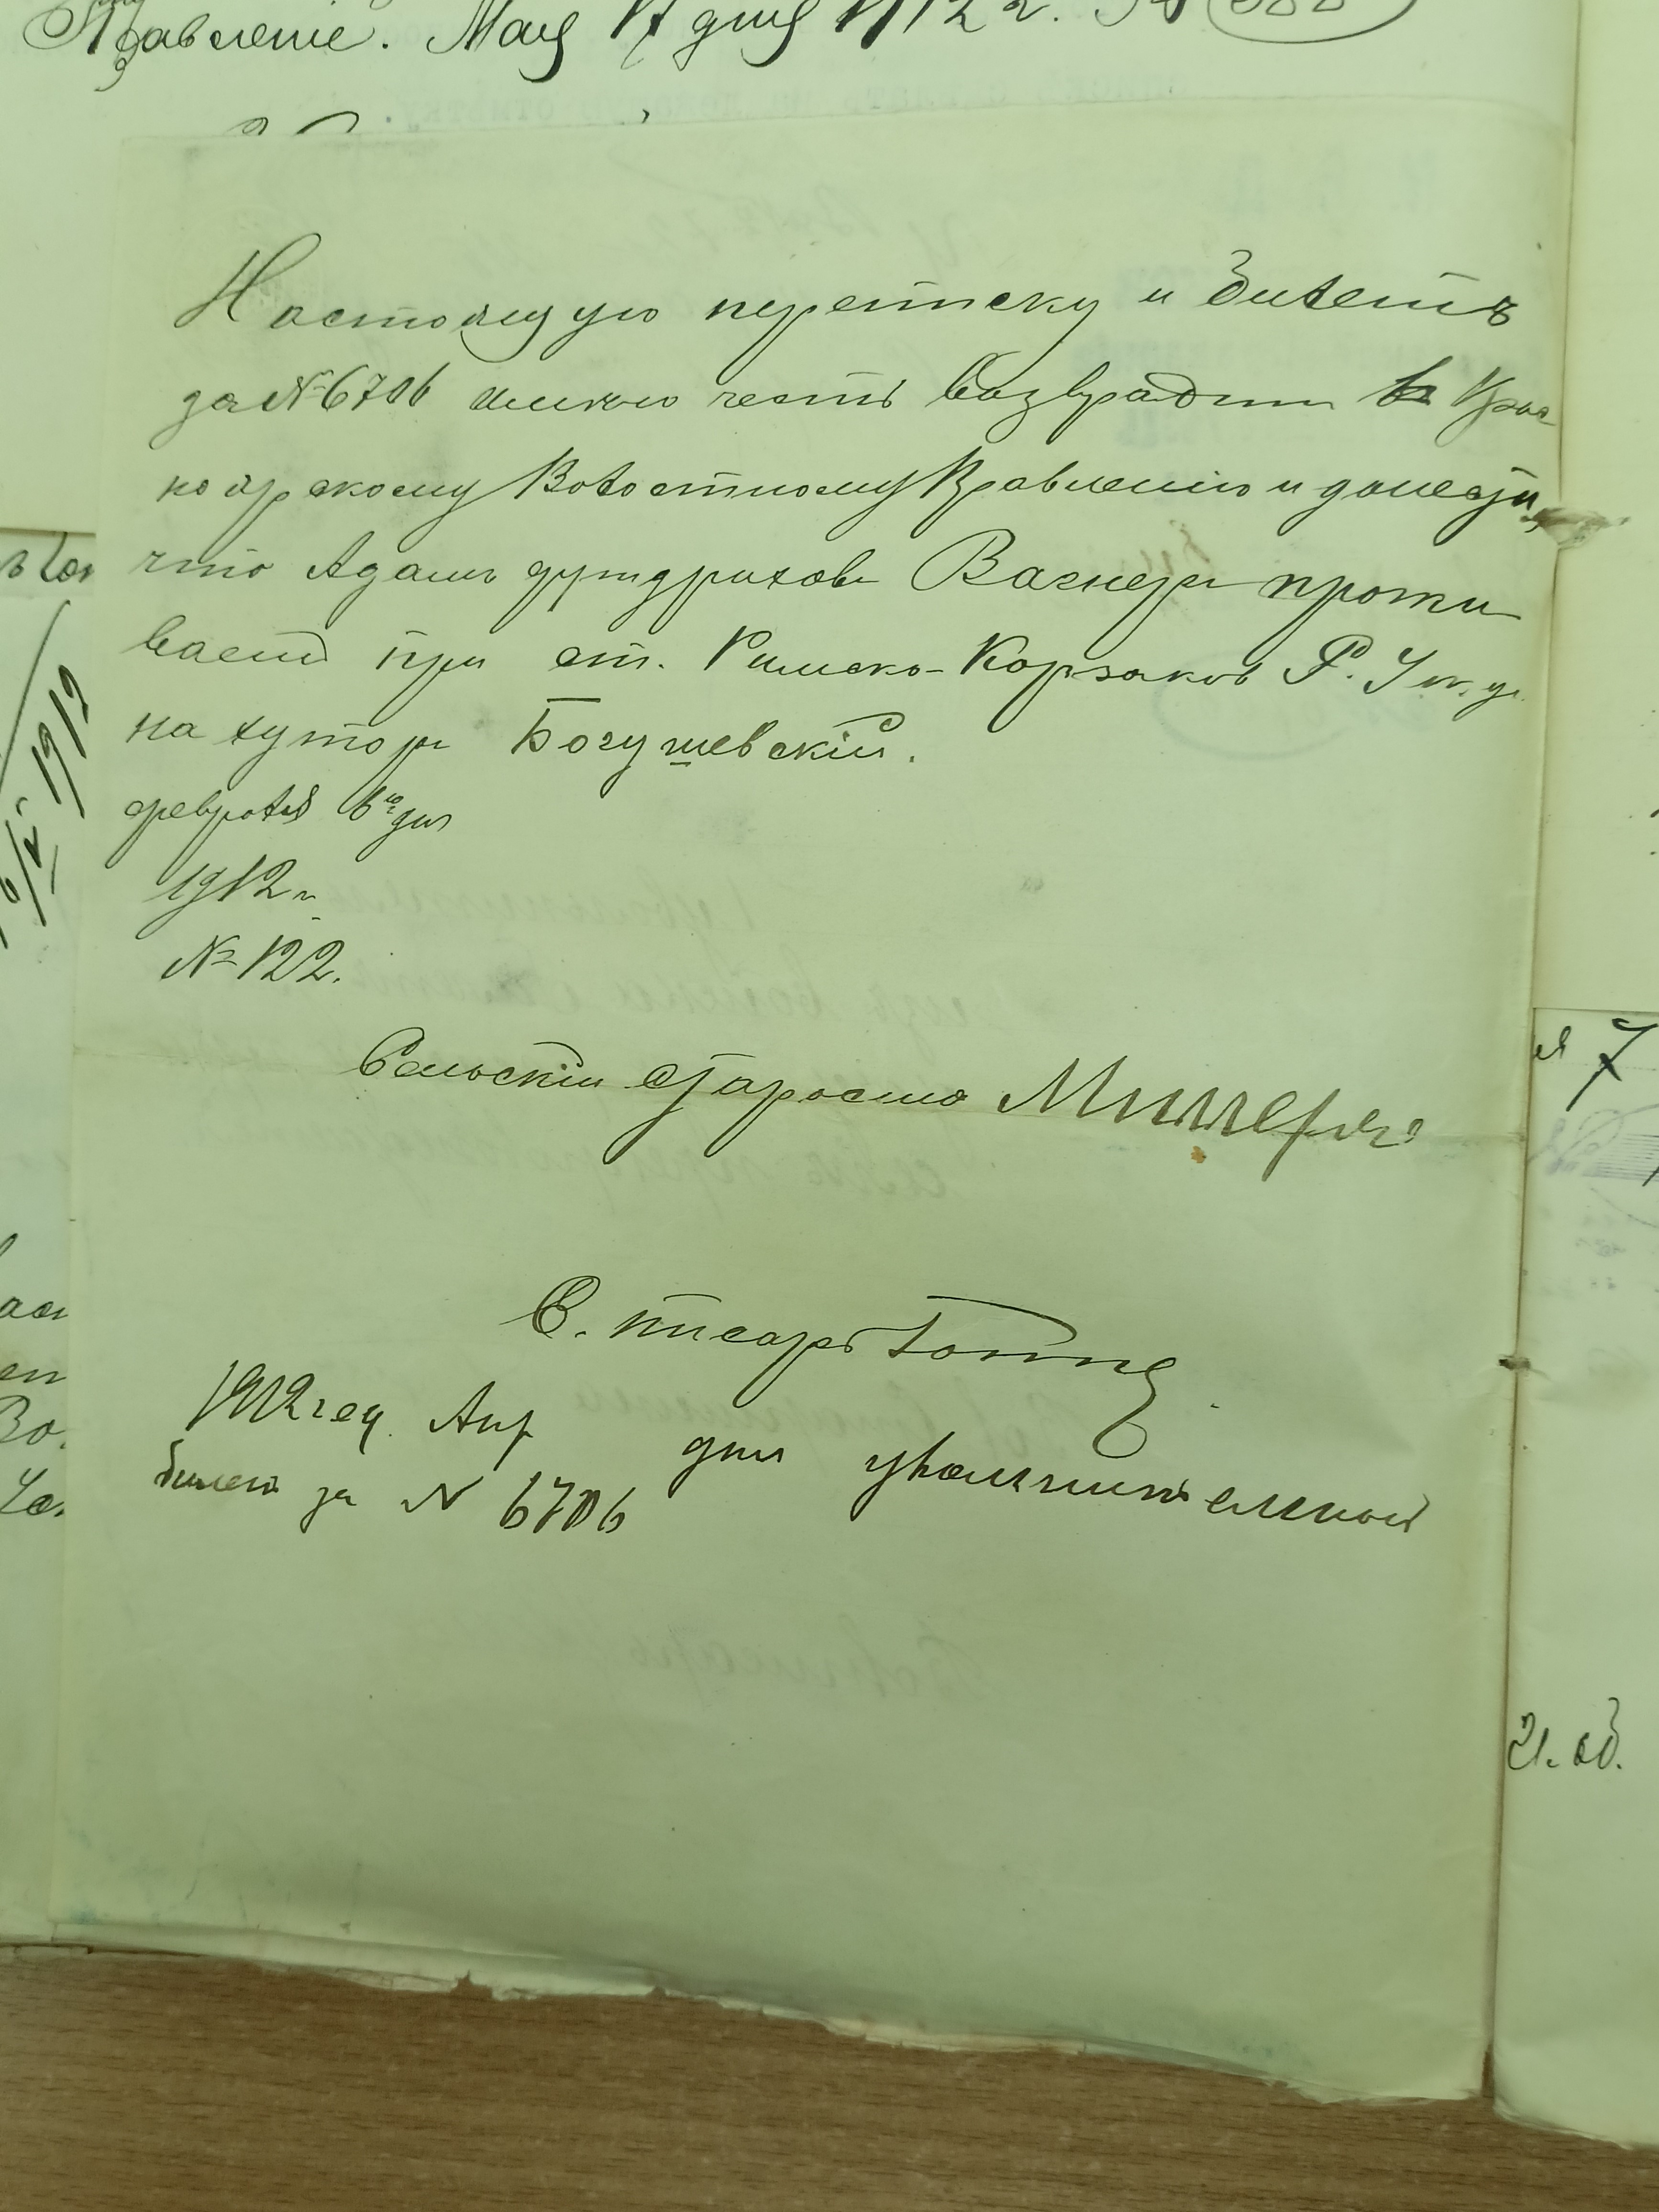 Правленіе. Мая 17 дня 1912 г. №
Настоящую переписку и билетъ
за № 6706 имѣю честь возвратить въ Крас
ноярскому Волостному Правленію и донести,
что Адамъ Вагнеръ прожи
ваетъ при ст. Римско-Корсаковъ Р. У. ж. д.
на хуторѣ Богушевскій.
февраля 6го дня
1912 г.
№ 122.
Сельскій Староста Миллеръ
С. писарь
1912 года Апр дня увольнительный
билетъ за № 6706
1912
7
21. об.